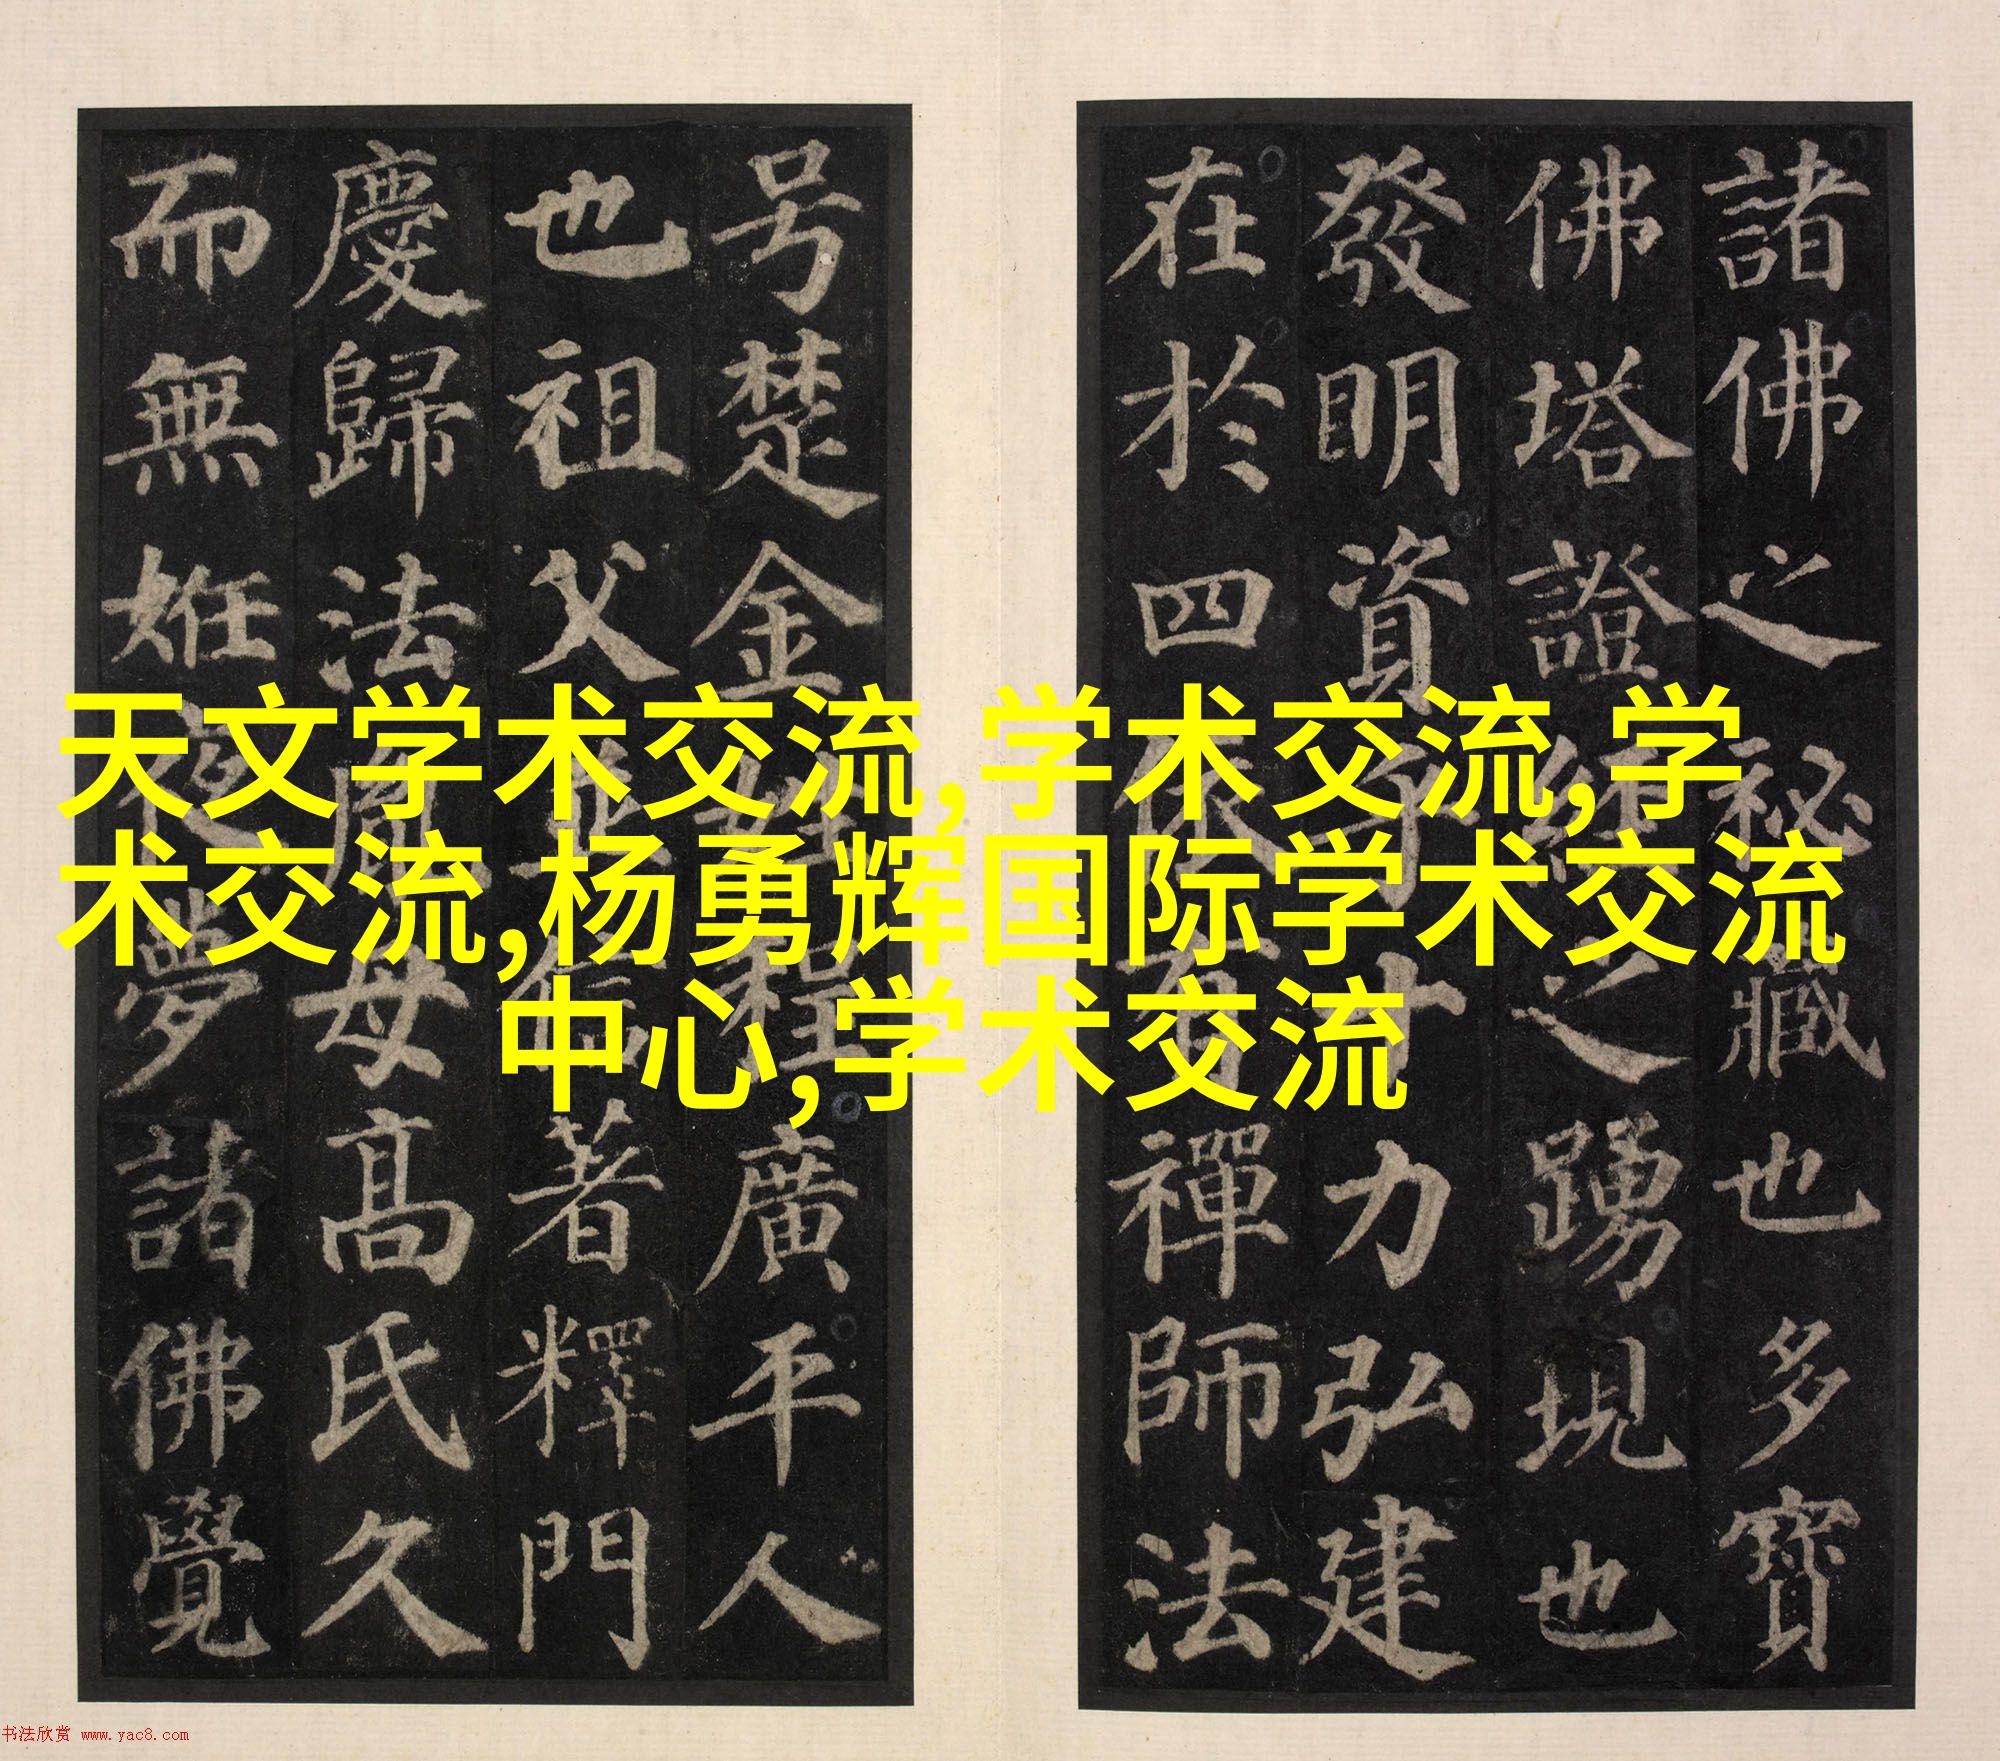 諸佛之祕藏也多寶
佛塔證經之踴現也
發明資乎十力弘建
在於四依有禪師法
号楚金姓程廣平人
也祖父並信著釋門
慶歸法胤母高氏久
而無姙夜夢諸佛覺
天文学术交流,学术交流,学
术交流,杨勇辉国际学术交流
中心,学术交流
书法欣赏 www.yac8.com